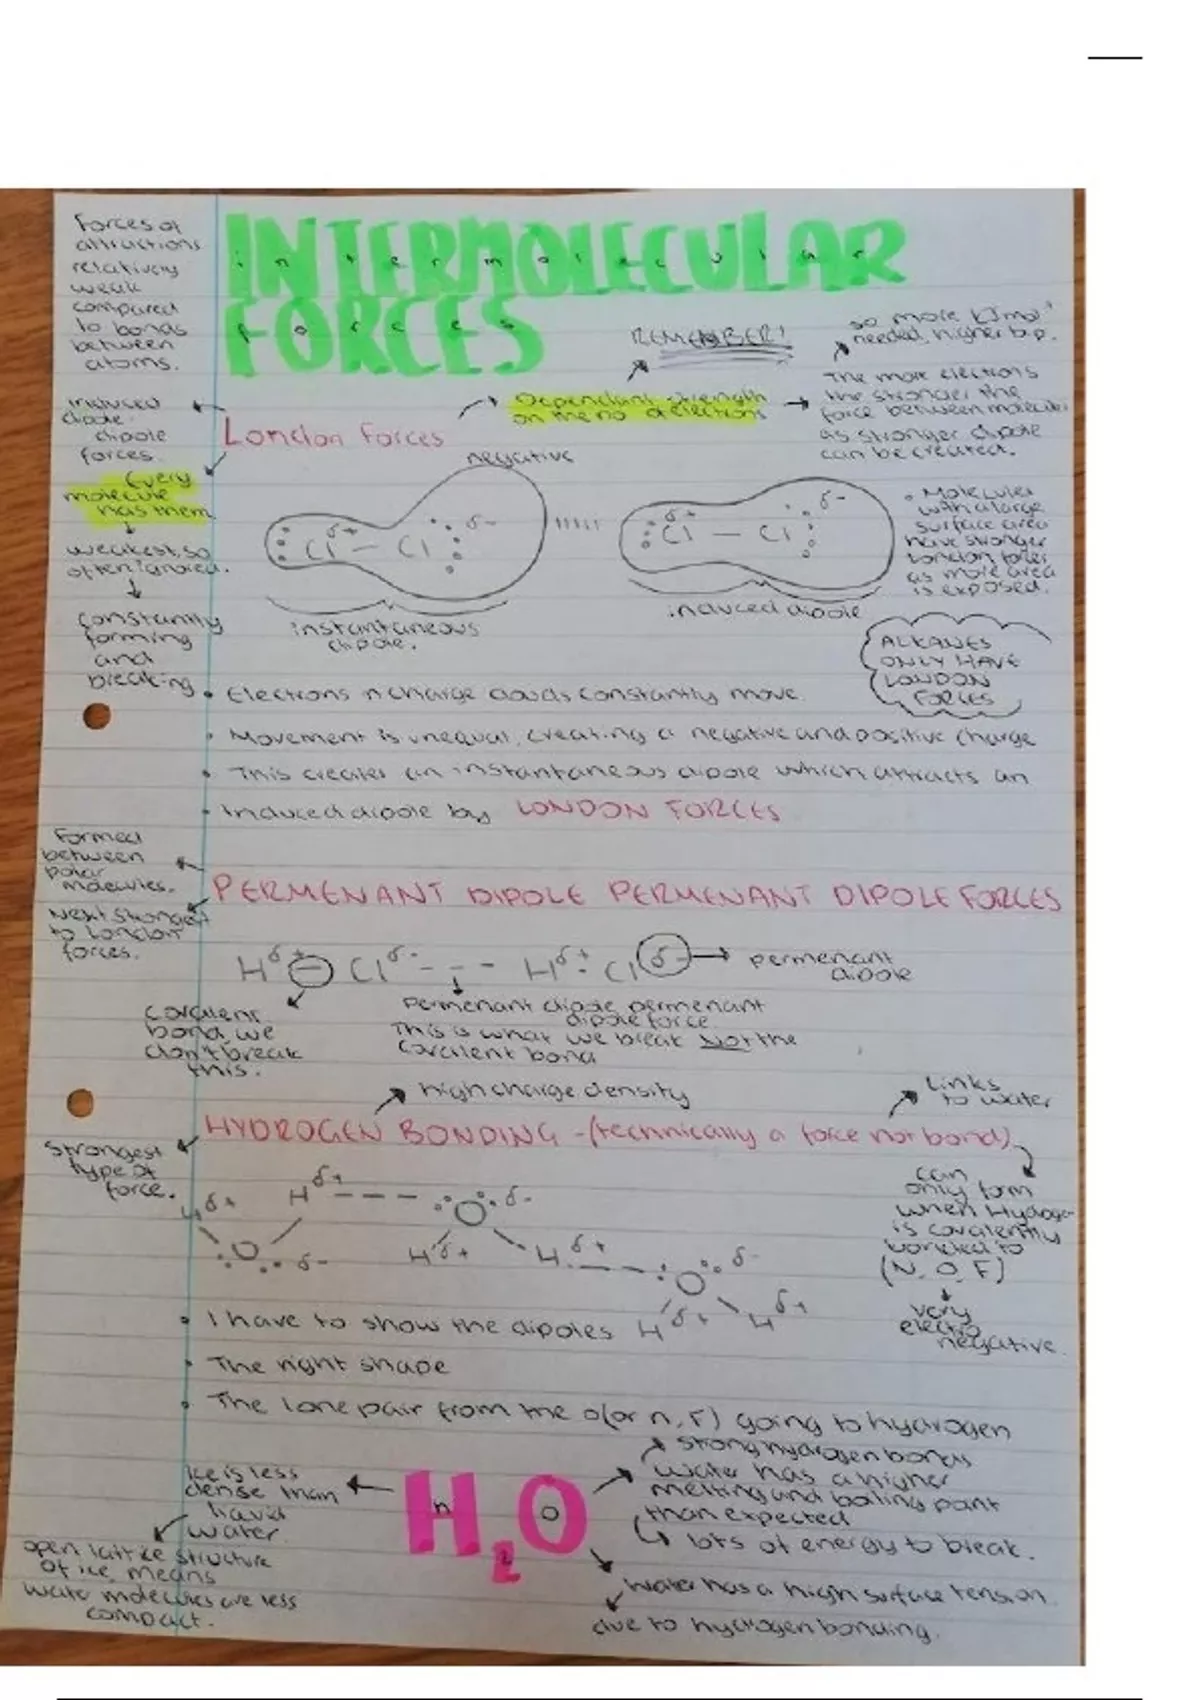 Forces of
attractions
relatively
weak
compared
to bonds
between
atoms.
INTERMOLECULAR
intermolecular
FORCES
forces
REMEMBER!
so more kJmol⁻¹
needed, higher b.p.
The more electrons
the stronger the
force between molecules
as stronger dipole
can be created.
Dependant strength
on the no of electrons
induced
dipole
dipole
forces.
London forces
Every
molecule
has them
weakest, so
often ignored.
constantly
forming
and
breaking
negative
δ+
Cl — Cl
δ-
δ+
Cl — Cl
δ-
instantaneous
dipole.
induced dipole
• Molecules
with a large
surface area
have stronger
London forces
as more area
is exposed.
ALKANES
ONLY HAVE
LONDON
FORCES
• Electrons n charge clouds constantly move.
• Movement is unequal, creating a negative and positive charge
• This creates an instantaneous dipole which attracts an
• Induced dipole by LONDON FORCES
Formed
between
polar
molecules.
PERMENANT DIPOLE PERMENANT DIPOLE FORCES
Next strongest
to London
forces.
Hδ+ — Clδ- - - - Hδ+ - Cl δ-
permenant
dipole
covalent
bond, we
don't break
this.
Permenant dipole permenant
dipole force.
This is what we break Not the
covalent bond
high charge density
Links
to water
HYDROGEN BONDING - (technically a force not bond)
strongest
type of
force.
Hδ+
Hδ+
O δ-
O δ-
Hδ+
Hδ+
O δ-
Hδ+
Hδ+
can
only form
when Hydrogen
is covalently
bonded to
(N, O, F)
very
electro
negative.
• I have to show the dipoles
• The right shape
• The lone pair from the O (or n, F) going to hydrogen
strong hydrogen bonds
water has a higher
melting and boiling point
than expected
lots of energy to break.
Ice is less
dense than
liquid
water.
H₂O
h
o
open lattice structure
of ice, means
water molecules are less
compact.
Water has a high surface tension
due to hydrogen bonding.